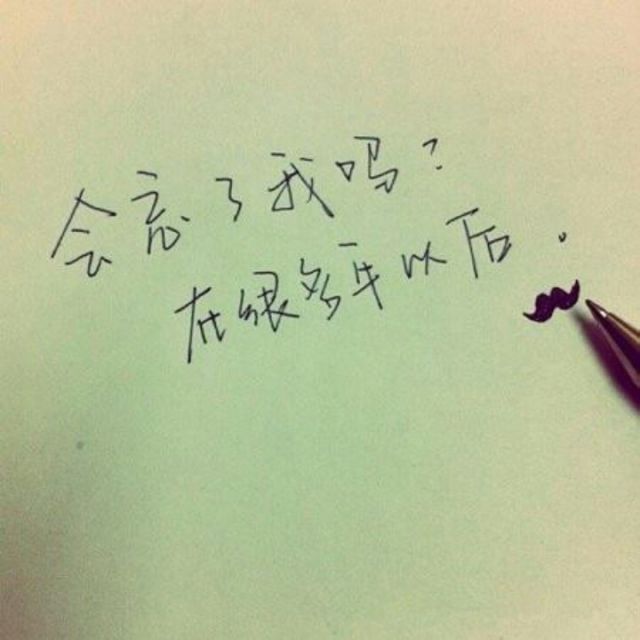 会忘了我吗?
在很多年以后.